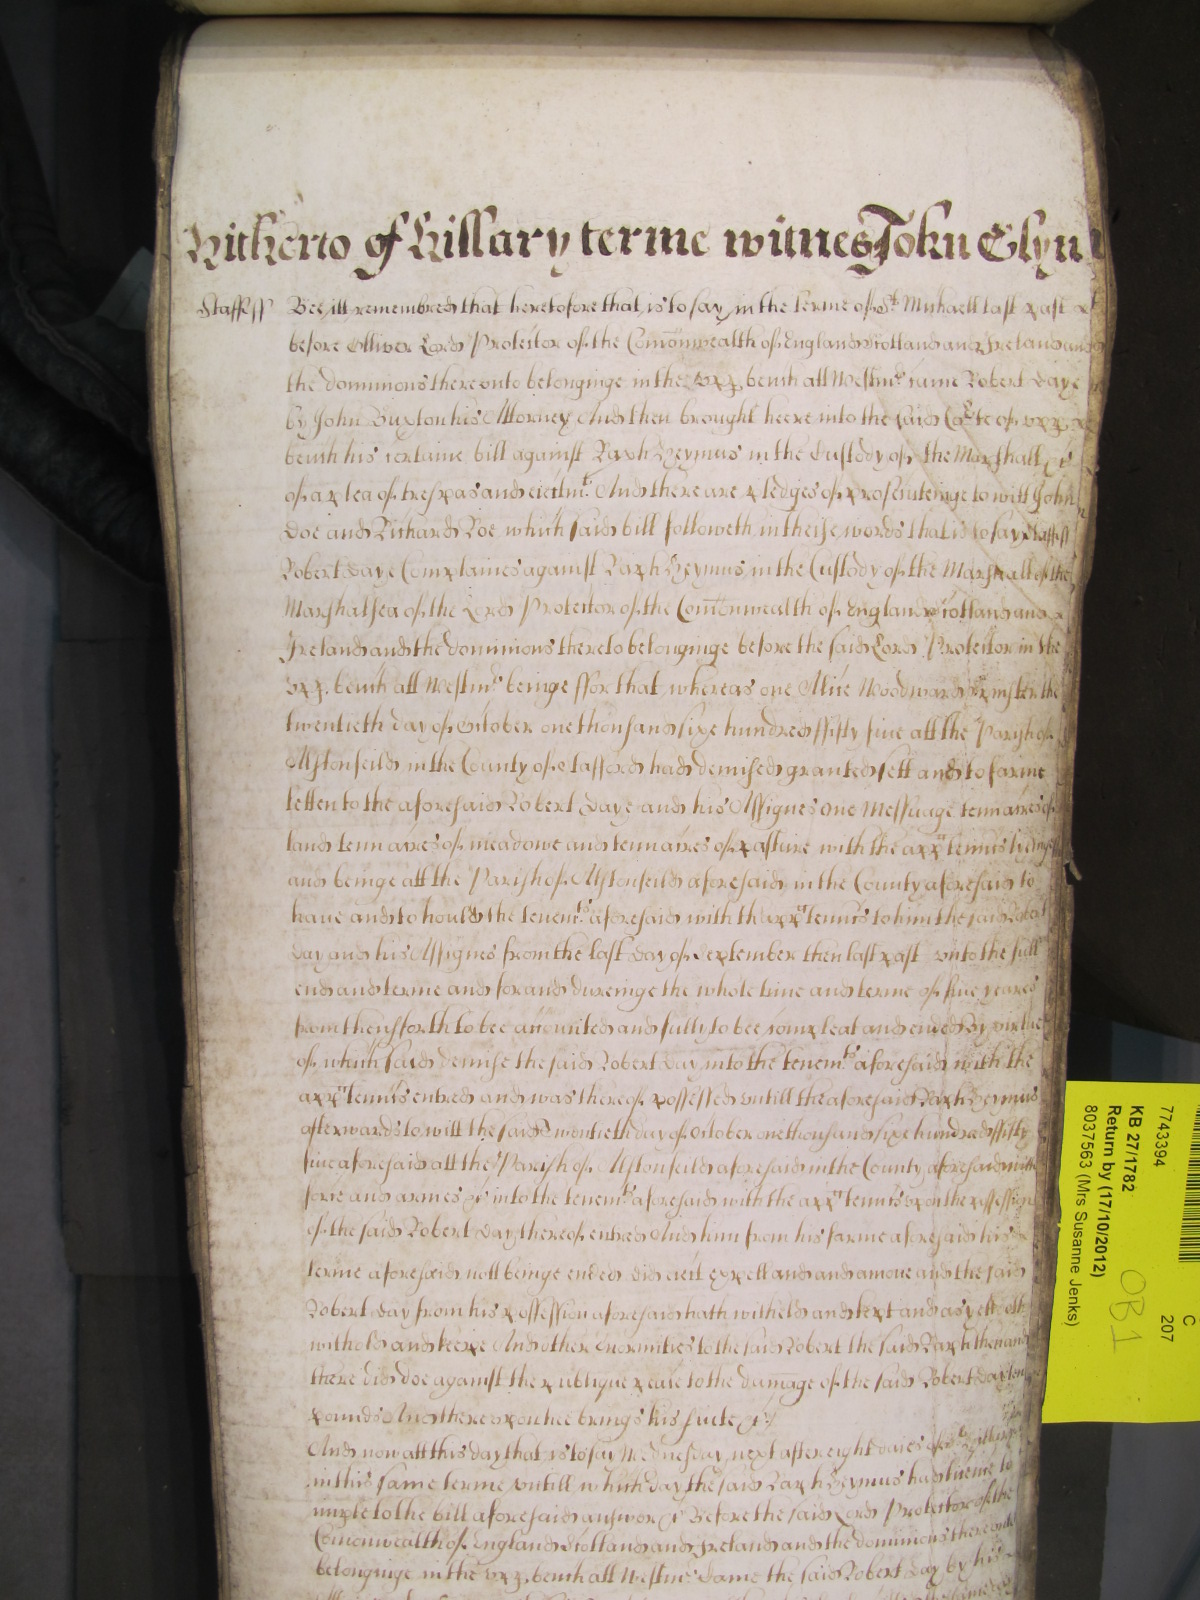 Hitherto of Hillary terme witnes John Glynn
Staff ss Bee itt remembred that heretofore that is to say in the terme of St Michaell last past
before Olliver Lord Protector of the Comonwealth of England Scotland and Ireland and
the dominions thereonto belonginge in the vpp. bench att Westmr came Robert Daye
by John Buxton his Attorney And then brought heere into the said Corte of vpp.
bench his certaine bill against Raph Heymus in the Custody of the Marshall &c
of a plea of trespas and eiectmt. And there are pledges of prosecuteinge to witt John
Doe and Richard Roe which said bill followeth in theise words that is to say Staff ss
Robert Daye Complaines against Raph Heymus in the Custody of the Marshall of the
Marshalsea of the Lord Protector of the Comonwealth of England Scotland and
Ireland and the dominions thereto belonginge before the said Lord Protector in the
vpp. bench att Westmr beinge ffor that whereas one Alice Woodward the
twentieth day of October one thousand sixe hundred ffifty five att the Parish of
Alstonfeild in the County of Stafford had demised granted sett and to farme
letten to the aforesaid Robert Daye and his Assignes one Messuage tenn acres of
land tenn acres of meadowe and tenn acres of pasture with the apptennts lyeinge
and beinge att the Parish of Alstonfeild aforesaid in the County aforesaid to
have and to hould the tenemts aforesaid with thapptennts to him the said Robert
Day and his Assignes from the last day of September then last past vnto the full
end and terme and for and dureinge the whole time and terme of five yeares
from thensforth to bee accounted and fully to bee compleat and ended By virtue
of which said demise the said Robert Day into the tenemts aforesaid with the
apptennts entred and was thereof possessed vntill the aforesaid Raph Heymus
afterwards to witt the said twentieth day of October one thousand sixe hundred ffifty
five aforesaid att the Parish of Alstonfeild aforesaid in the County aforesaid with
force and armes &c into the tenemts aforesaid with the apptennts vpon the possession
of the said Robert Day thereof entred And him from his farme aforesaid his
terme aforesaid nott beinge ended did eiect expell and and amove and the said
Robert Day from his possession aforesaid hath witheld and kept and as yett doth
withold and keepe And other enormities to the said Robert the said Raph then and
there did doe against the publique peace to the damage of the said Robert Day tenn
pounds And therevpon hee brings his suite &c
And now att this day that is to say Wednesday next after eight daies of St Hillary
in this same terme vntill which day the said Raph Heymus had licence to
imple to the bill aforesaid answer &c Before the said Lord Protector of the
Comonwealth of England Scotland and Ireland and the dominions thereonto
belonginge in the vpp. bench att Westmr Came the said Robert Day by his
7743394
KB 27/1782
Return by (17/10/2012)
8037563 (Mrs Susanne Jenks)
C
207
OB1